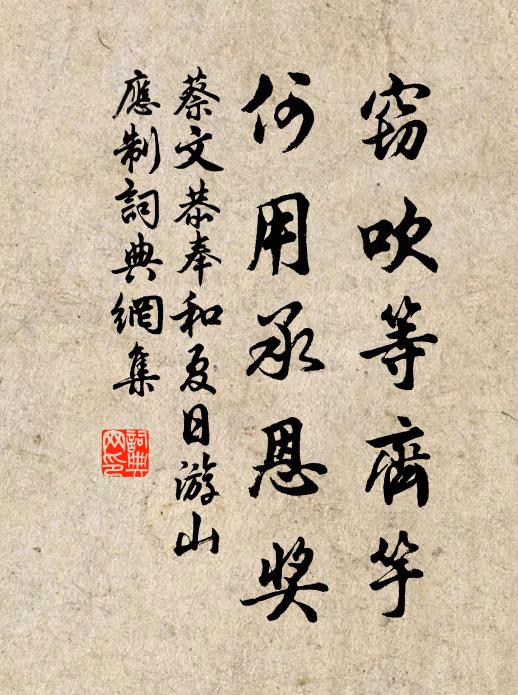 窃吹等齊竽
何用承恩奖
蔡文恭奉和夏日游山
應制詞典網集
詞典网印